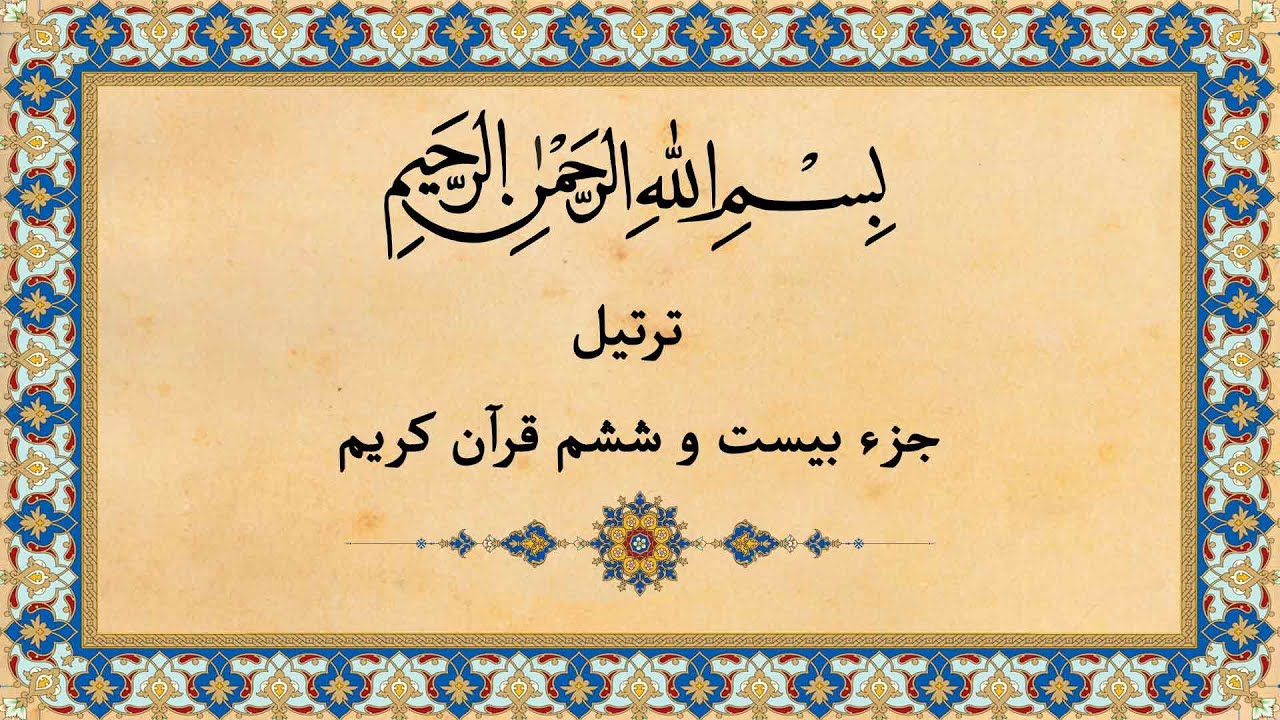 بِسْمِ اللهِ الرَّحْمٰنِ الرَّحِيمِ
ترتیل
جزء بیست و ششم قرآن کریم